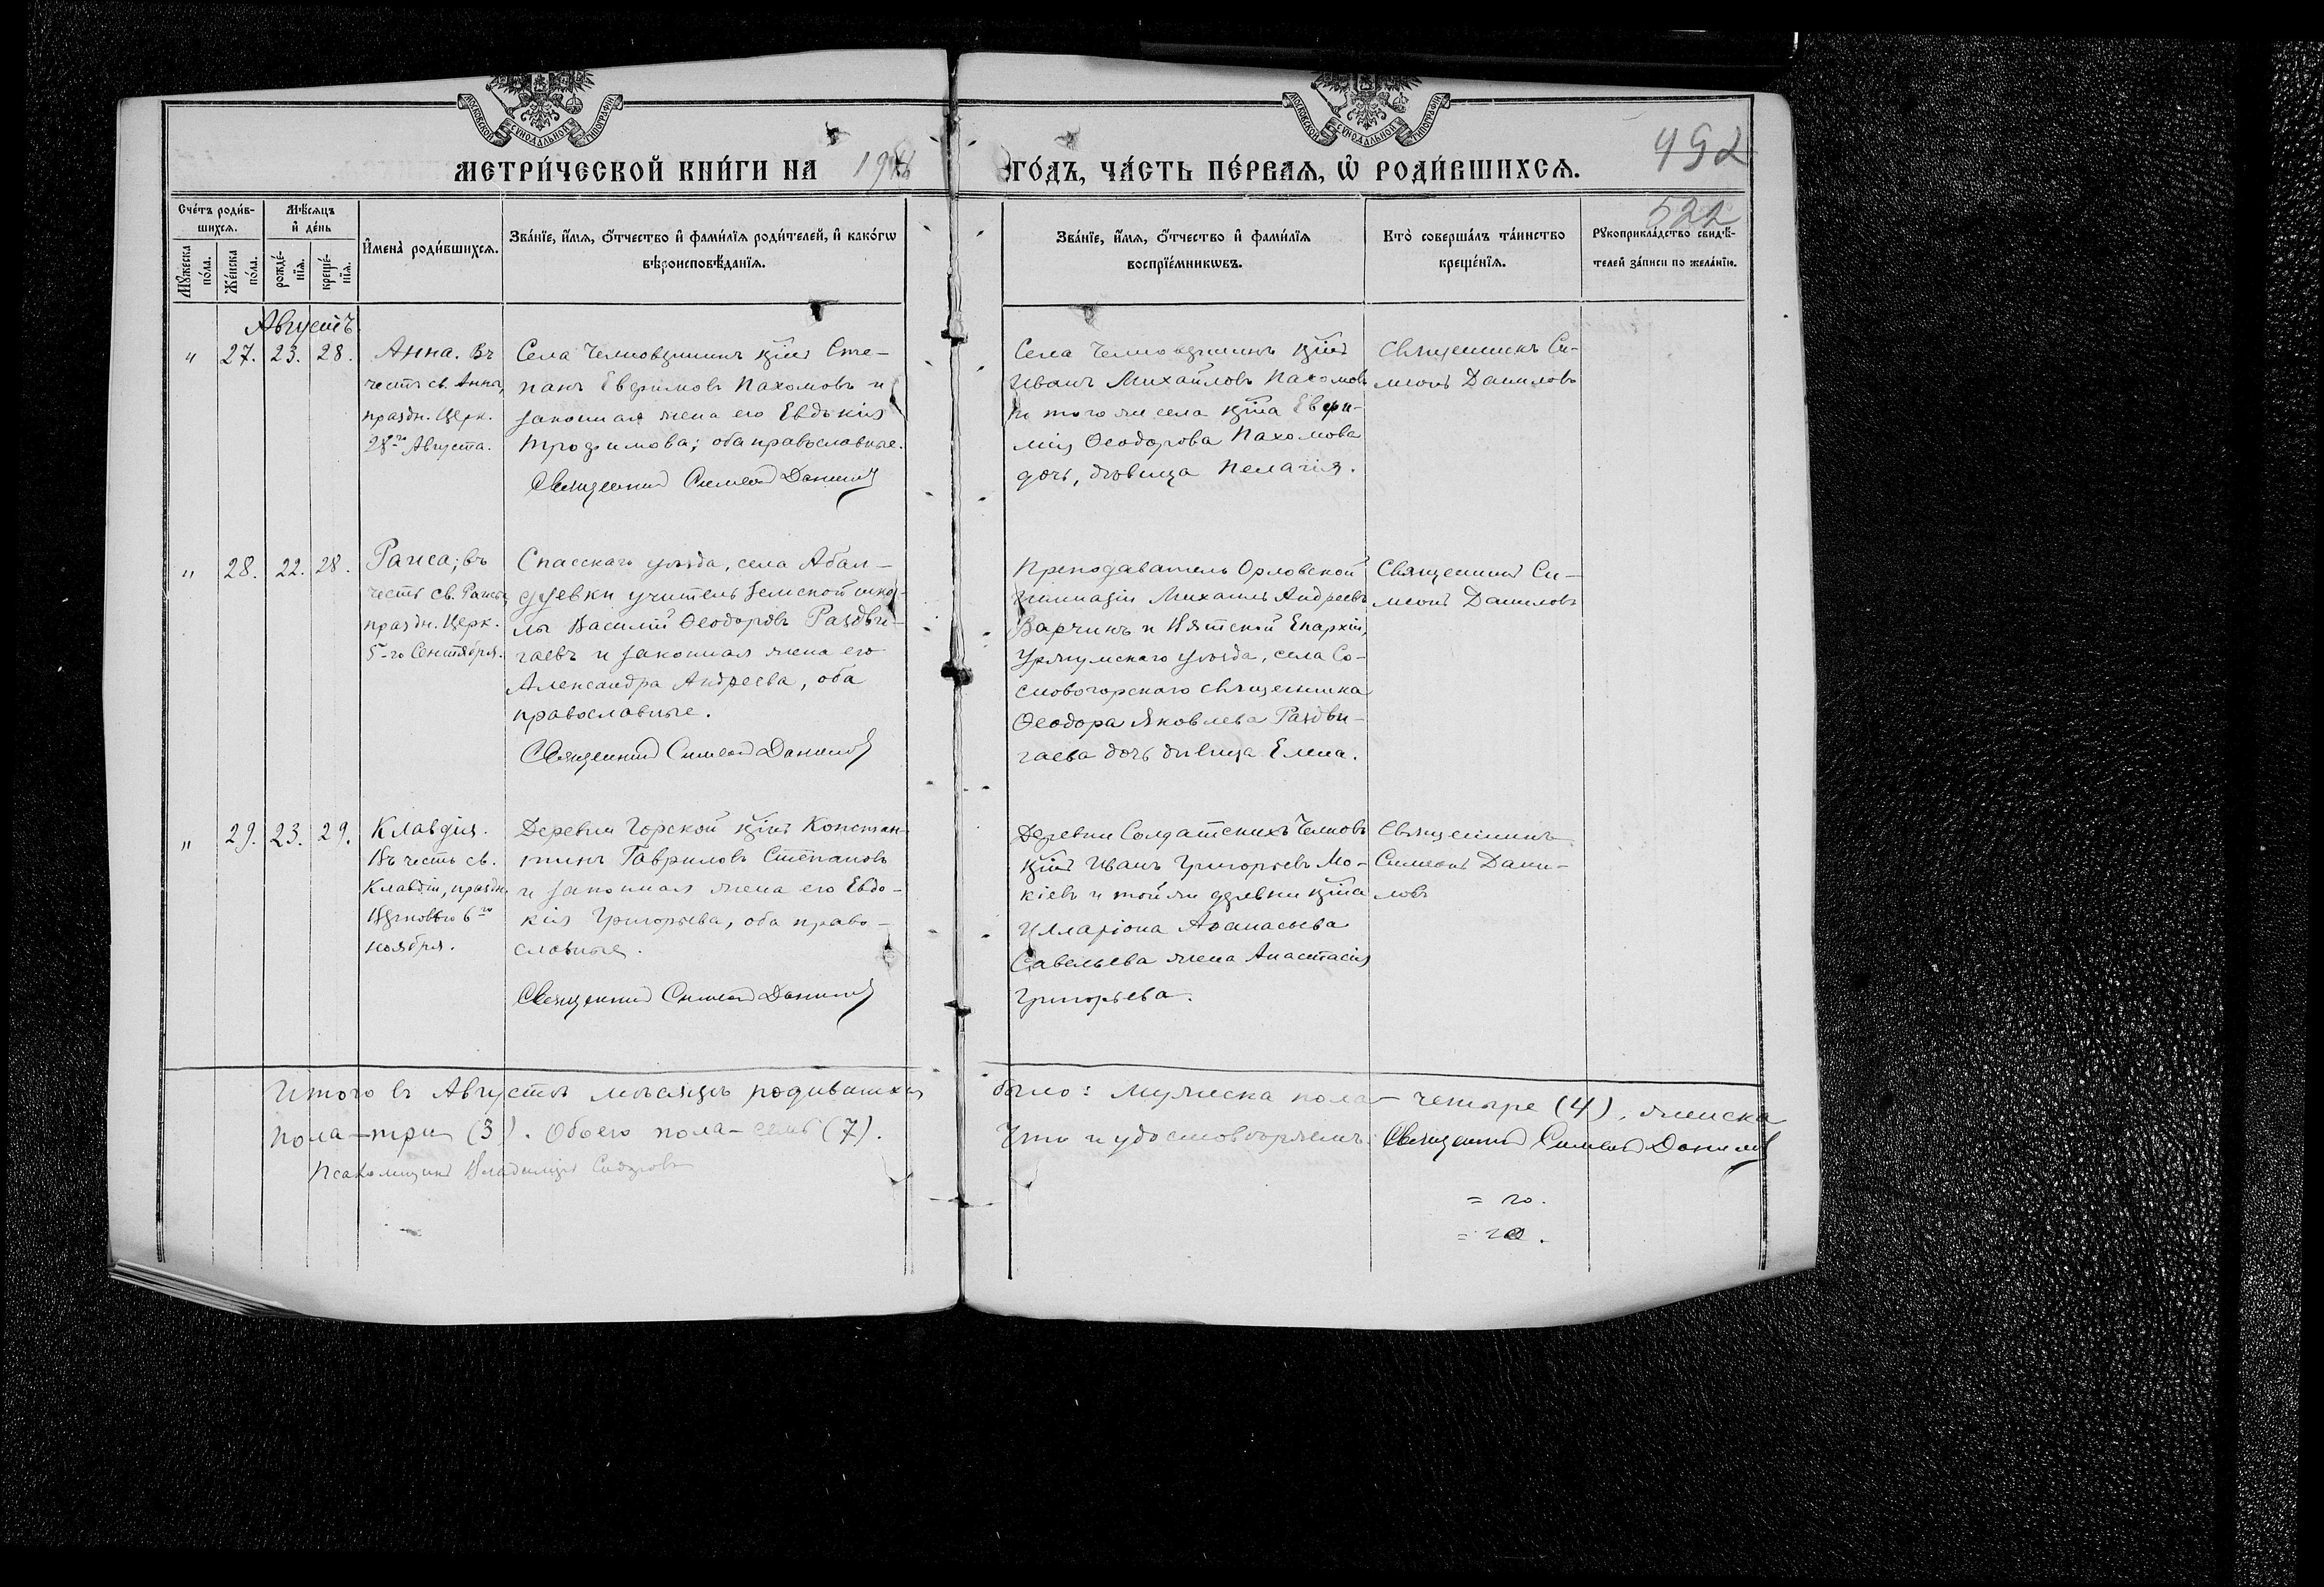 МОСКОВСКОЙ СѴНОДАЛЬНОЙ ТИПОГРАФІИ
МОСКОВСКОЙ СѴНОДАЛЬНОЙ ТИПОГРАФІИ
МЕТРИ́ЧЕСКОЙ КНИ́ГИ НА
ГО́ДЪ, ЧА́СТЬ ПЕ́РВАЯ, Ѽ РОДИ́ВШИХСЯ.
492
522
Сче́тъ роди́в-
шихся.
Мѣ́сяцъ
и҆ де́нь
Мꙋ́жеска
по́ла.
Же́нска
по́ла.
рожде́-
нїя.
креще́-
нїя.
И҆мена̀ роди́вшихся.
Зва́нїе, и҆́мя, ѻ҆́тчество и҆ фами́лїя роди́телей, и҆ како́гѡ
вѣроисповѣ́данїя.
Зва́нїе, и҆́мя, ѻ҆́тчество и҆ фами́лїя
воспрїе́мникѡвъ.
Кто̀ соверша́лъ та́инство
креще́нїя.
Рꙋкоприкла́дство свидѣ́-
телей за́писи по жела́нїю.
Августъ
" 27. 23. 28.
Анна. Въ
честь св. Анны,
праздн. Церк.
28го Августа.
Села кнъ Сте-
панъ Евфимовъ Пахомовъ и
законная жена его Евдокія
Трофимова; оба православные.
Священникъ Симеонъ Даниловъ
Села кнъ
Иванъ Михайловъ Пахомовъ
и того же села кна Евфи-
мія Ѳеодорова Пахомова
дочь, дѣвица Пелагія.
Священникъ Си-
меонъ Даниловъ
" 28. 22. 28.
Раиса; въ
честь св. Раисы,
праздн. Церк.
5-го Сентября.
Спасскаго уѣзда, села Абал-
дуевки учитель Земской шко-
лы Василій Ѳеодоровъ Раздви-
гаевъ и законная жена его
Александра Андреева, оба
православные.
Священникъ Симеонъ Даниловъ
Преподаватель Орловской
Гимназіи Михаилъ Андреевъ
Варчинъ и Вятской Епархіи,
Уржумскаго уѣзда, села Со-
сновогорскаго священника
Ѳеодора Яковлева Раздви-
гаева дочь дѣвица Елена.
Священникъ Си-
меонъ Даниловъ
" 29. 23. 29.
Клавдія.
Въ честь св.
Клавдіи, праздн.
Церковью 6го
ноября.
Деревни Горской кнъ Констан-
тинъ Гавриловъ Степановъ
и законная жена его Евдо-
кія Григорьева, оба право-
славные.
Священникъ Симеонъ Даниловъ
Деревни Солдатскихъ Челновъ
кнъ Иванъ Григорьевъ Мо-
кіевъ и той же деревни кна
Илларіона Аѳанасьева
Савельева жена Анастасія
Григорьева.
Священникъ
Симеонъ Дани-
ловъ
Итого въ Августѣ мѣсяцѣ родившихся было: мужеска пола - четыре (4), женска
пола - три (3). Обоего пола - семь (7). Что и удостовѣряемъ: Священникъ Симеонъ Даниловъ
Псаломщикъ Владиміръ Сидоровъ